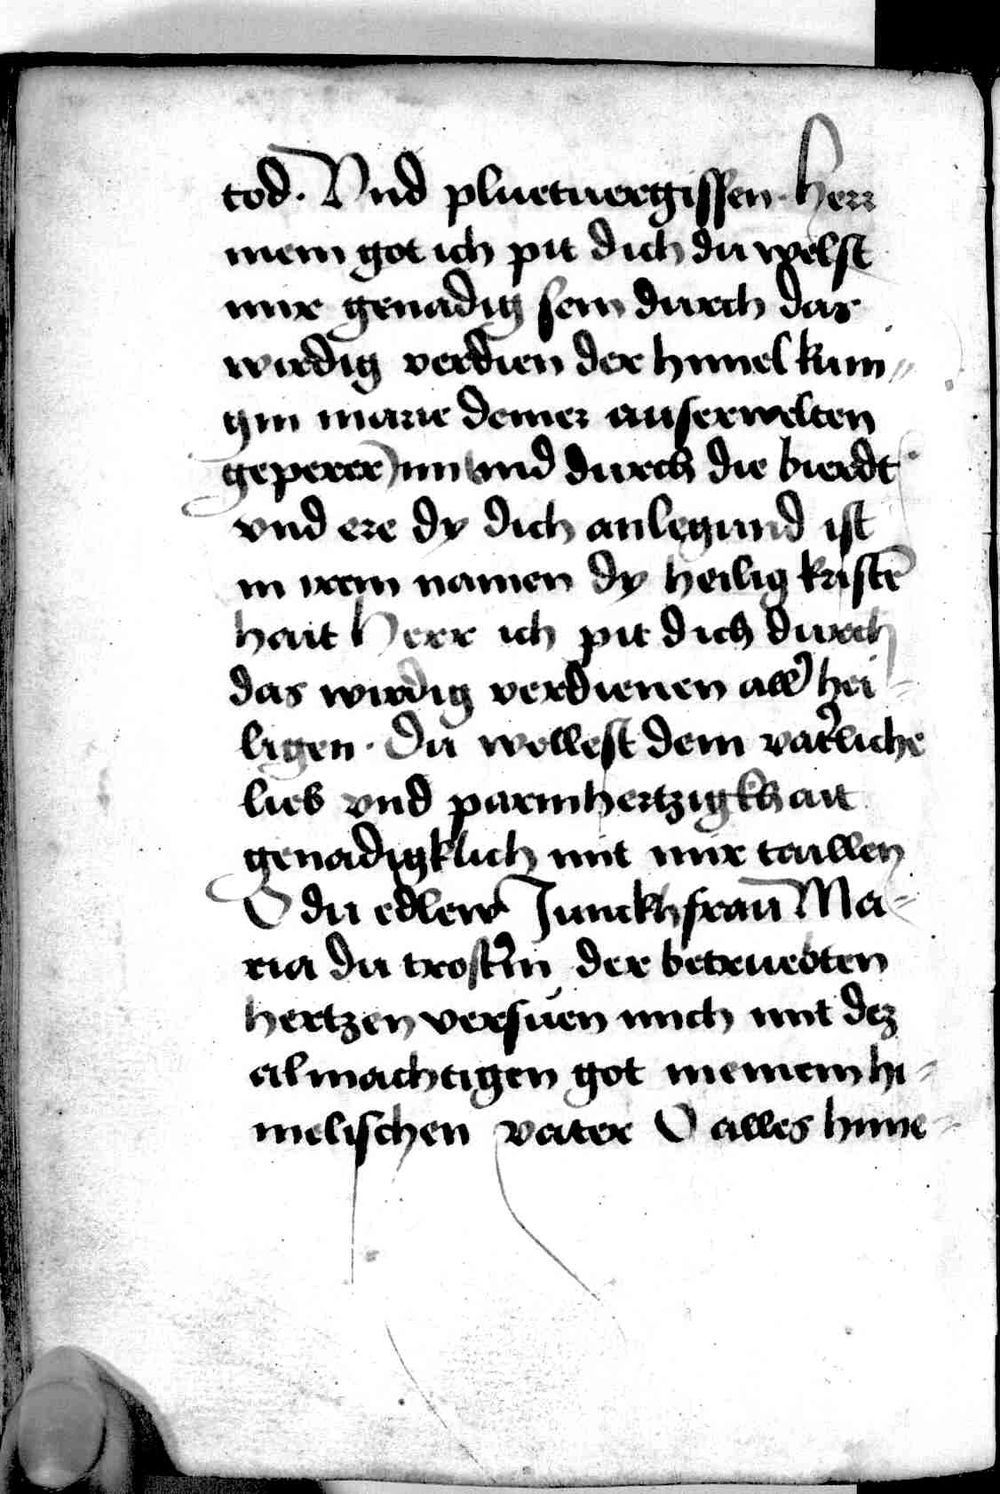 tod. Vnd pluetuergissen. Herr
mein got ich pit dich du welst
mir genadig sein durch das
wirdig verdien der himel kuni„
gin marie deiner auserwelten
gepererinn vnd durch die bierdt
vnd ere dy dich anlegund ist
in irem namen dy heilig kristē
hait Herr ich pit dich durch
das wirdig verdienen all' hei-
ligen. Du wellest dein vat'liche
lieb vnd parmhertzigkhait
genadigklich mit mir taillen
O du edlew Junckhfraw Ma-
ria du trost'in der betruebten
hertzen versuen mich mit dez
almachtigen got meinem hi-
melischen vater O alles hime-